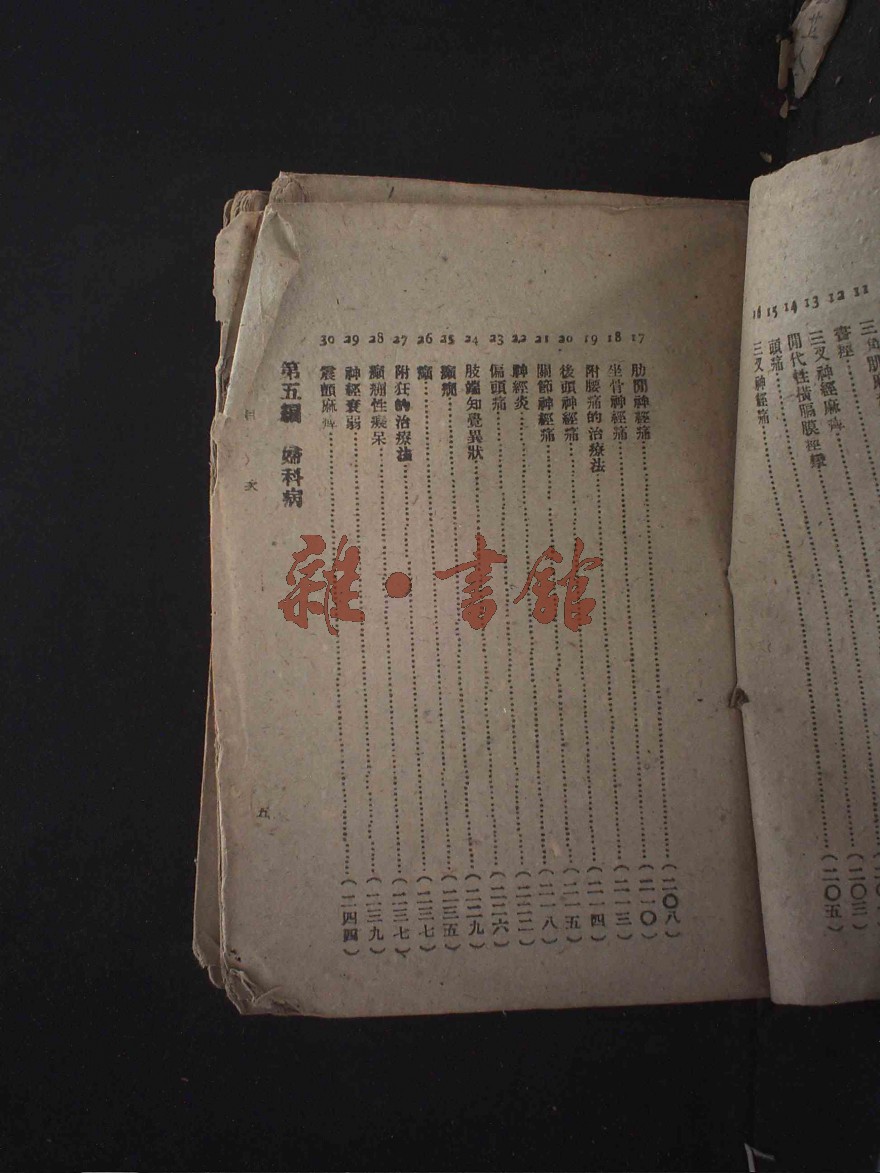 11 三角肌麻
12 書痙
13 三叉神經麻痺
14 間代性橫膈膜痙攣
15 頭痛……(二〇三)
16 三叉神經痛……(二〇五)
17 肋間神經痛……(二〇八)
18 坐骨神經痛……(二一〇)
19 附腰痛的治療法……(二一三)
20 後頭神經痛……(二一四)
21 關節神經痛……(二一五)
22 神經炎……(二一八)
23 偏頭痛……(二二二)
24 肢端知覺異狀……(二二六)
25 癲癇……(二二九)
26 癲……(二三五)
27 附狂的治療法……(二三七)
28 癲癇性癡呆……(二三七)
29 神經衰弱……(二三九)
30 震顫麻痺……(二四四)
第五編 婦科病
目次
五
雜·書館